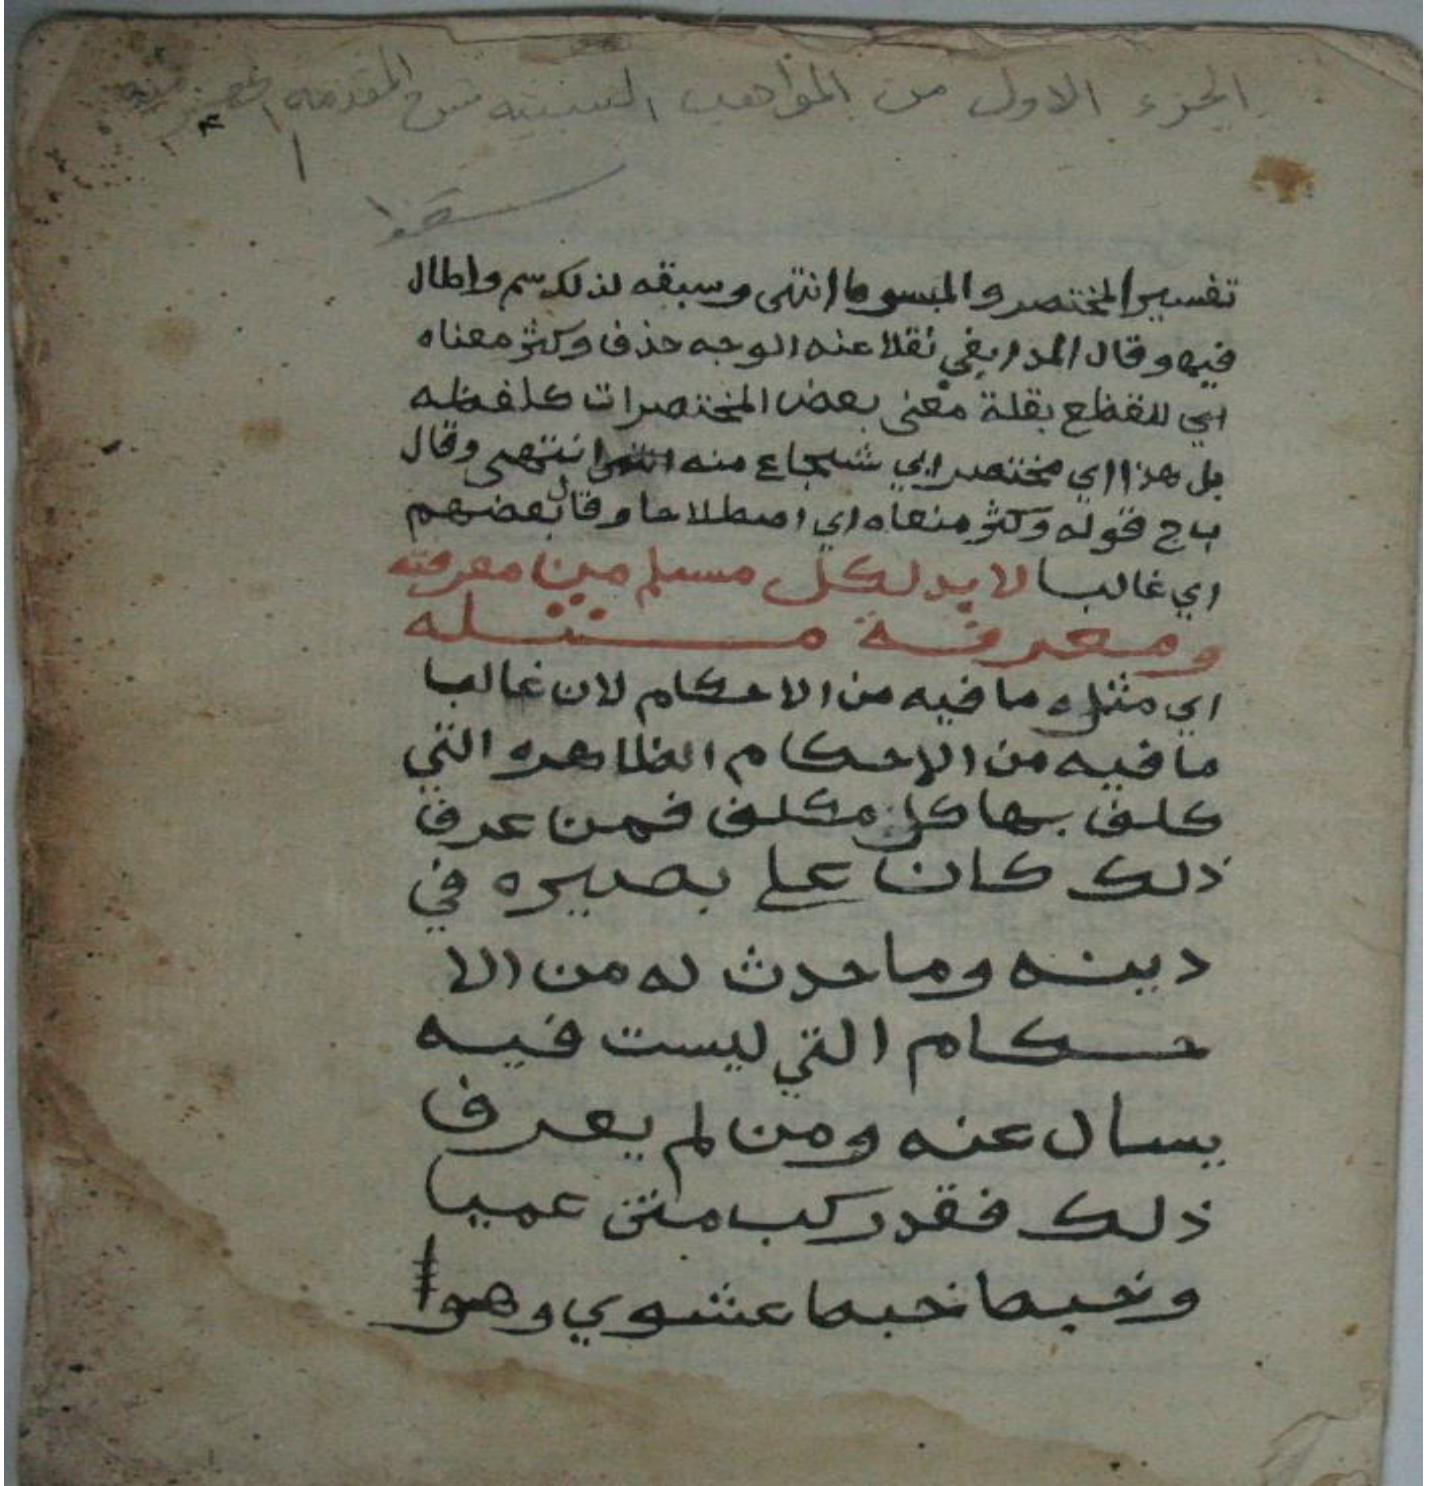 الجزء الاول من المواهب السنيه شرح المقدمه الحضرميه
تفسير المختصر والمبسوط انتهى وسبقه لذلك سم واطال
فيه وقال المدابغي نقلا عنه الوجه حذف وكثر معناه
اي للقطع بقلة معنى بعض المختصرات كلفظه
بل هذا اي مختصر ابي شجاع منه انتهى وقال
ب ج قوله وكثر منعاه اي اصطلاحا وقال بعضهم
اي غالبا لا بد لكل مسلم من معرفته
ومعرفة مثله
اي مثل ما فيه من الاحكام لان غالب
ما فيه من الاحكام الظاهره التي
كلف بها كل مكلف فمن عرف
ذلك كان على بصيره في
دينه وما حدث له من الا
حكام التي ليست فيه
يسال عنه ومن لم يعرف
ذلك فقد ركب متن عميا
وخبط خبط عشوي وهو